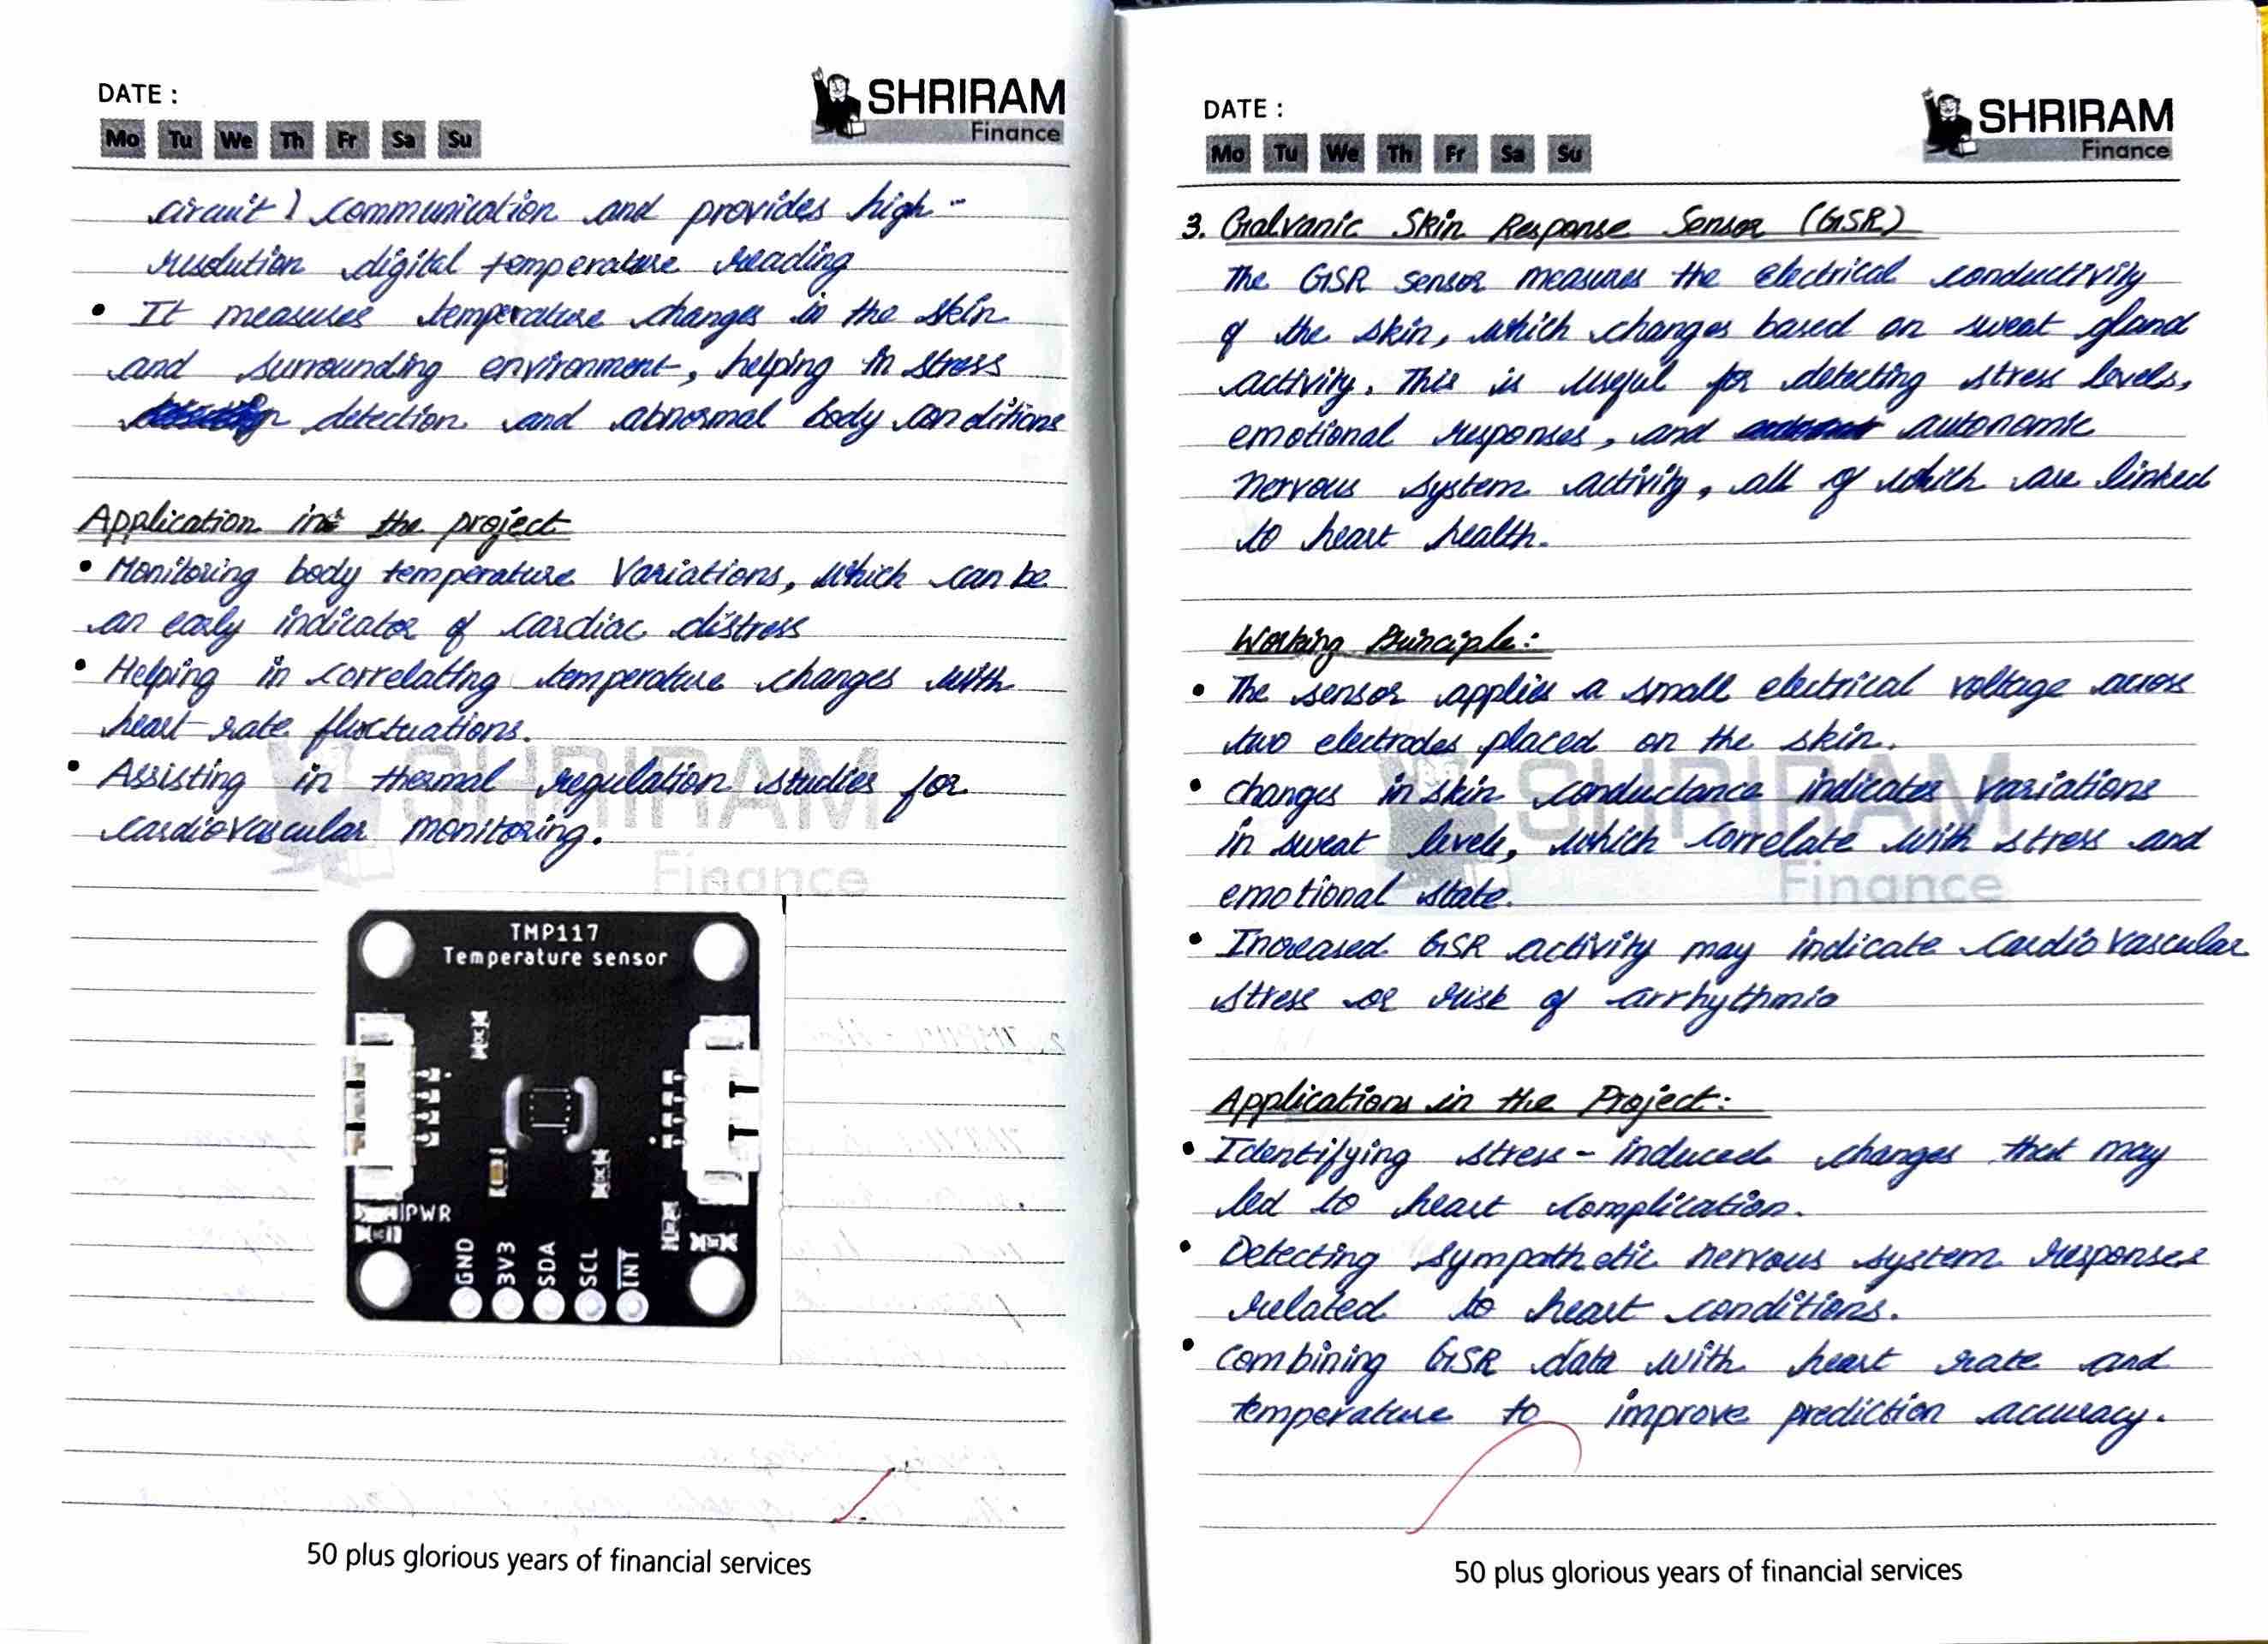 DATE :
SHRIRAM
Finance
Mo Tu We Th Fr Sa Su
circuit) communication and provides high-
resolution digital temperature reading
• It measures temperature changes in the skin
and surrounding environment, helping in stress
detection and abnormal body conditions
Application in the project
• Monitoring body temperature Variations, which can be
an early indicator of cardiac distress
• Helping in correlating temperature changes with
heart rate fluctuations.
• Assisting in thermal regulation studies for
cardiovascular monitoring.
SHRIRAM
Finance
TMP117
Temperature sensor
PWR
GND 3V3 SDA SCL INT
50 plus glorious years of financial services
DATE :
SHRIRAM
Finance
Mo Tu We Th Fr Sa Su
3. Galvanic Skin Response Sensor (GSR)
The GSR sensor measures the electrical conductivity
of the skin, which changes based on sweat gland
activity. This is useful for detecting stress levels,
emotional responses, and autonomic
nervous system activity, all of which are linked
to heart health.
Working Principle:
• The sensor applies a small electrical voltage across
two electrodes placed on the skin.
• Changes in skin conductance indicates variations
in sweat levels, which correlate with stress and
emotional state.
• Increased GSR activity may indicate cardiovascular
stress or risk of arrhythmia
SHRIRAM
Finance
Applications in the Project:
• Identifying stress-induced changes that may
led to heart complication.
• Detecting sympathetic nervous system responses
related to heart conditions.
• Combining GSR data with heart rate and
temperature to improve prediction accuracy.
50 plus glorious years of financial services